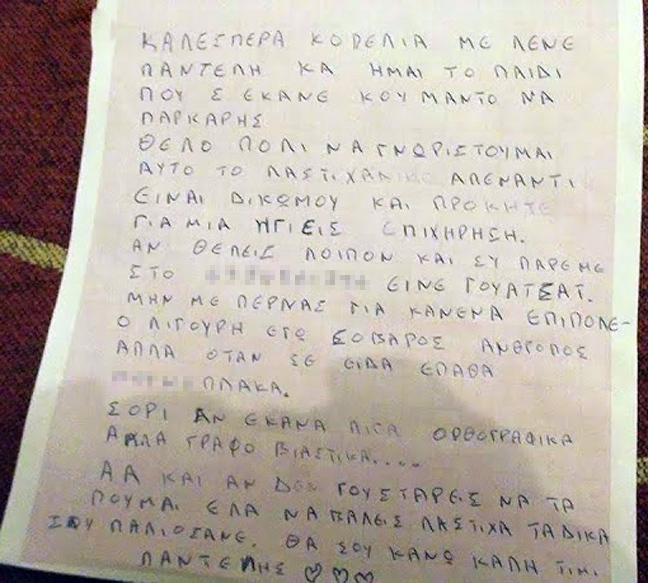 ΚΑΛΕΣΠΕΡΑ ΚΟΠΕΛΙΑ ΜΕ ΛΕΝΕ
ΠΑΝΤΕΛΗ ΚΑ ΗΜΑΙ ΤΟ ΠΑΙΔΙ
ΠΟΥ Σ ΕΚΑΝΕ ΚΟΥΜΑΝΤΟ ΝΑ
ΠΑΡΚΑΡΗΣ
ΘΕΛΟ ΠΟΛΙ ΝΑ ΓΝΩΡΙΣΤΟΥΜΑΙ
ΑΥΤΟ ΤΟ ΛΑΣΤΙΧΑΔΙΚΟ ΑΠΕΝΑΝΤΙ
ΕΙΝΑΙ ΔΙΚΩΜΟΥ ΚΑΙ ΠΡΟΚΗΤΕ
ΓΙΑ ΜΙΑ ΗΓΙΕΙΣ ΕΠΙΧΗΡΗΣΗ.
ΑΝ ΘΕΛΕΙΣ ΛΟΙΠΟΝ ΚΑΙ ΣΥ ΠΑΡΕ ΜΕ
ΣΤΟ ΕΙΝΕ ΓΟΥΑΤΣΑΤ.
ΜΗΝ ΜΕ ΠΕΡΝΑΣ ΓΙΑ ΚΑΝΕΝΑ ΕΠΙΠΟΛΕ-
Ο ΛΙΓΟΥΡΗ ΕΓΩ ΣΟΒΑΡΟΣ ΑΝΘΡΟΠΟΣ
ΑΛΛΑ ΟΤΑΝ ΣΕ ΕΙΔΑ ΕΠΑΘΑ
ΠΛΑΚΑ.
ΣΟΡΙ ΑΝ ΕΚΑΝΑ ΛΙΓΑ ΟΡΘΟΓΡΑΦΙΚΑ
ΑΛΛΑ ΓΡΑΦΟ ΒΙΑΣΤΙΚΑ.....
ΑΑ ΚΑΙ ΑΝ ΔΕΣ ΓΟΥΣΤΑΡΕΙΣ ΝΑ ΤΑ
ΠΟΥΜΑΙ ΕΛΑ ΝΑ ΒΑΛΕΙΣ ΛΑΣΤΙΧΑ ΤΑ ΔΙΚΑ
ΣΟΥ ΠΑΛΙΟΣΑΝΕ. ΘΑ ΣΟΥ ΚΑΝΩ ΚΑΛΗ ΤΙΜ.
ΠΑΝΤΕΛΗΣ ♡♡♡